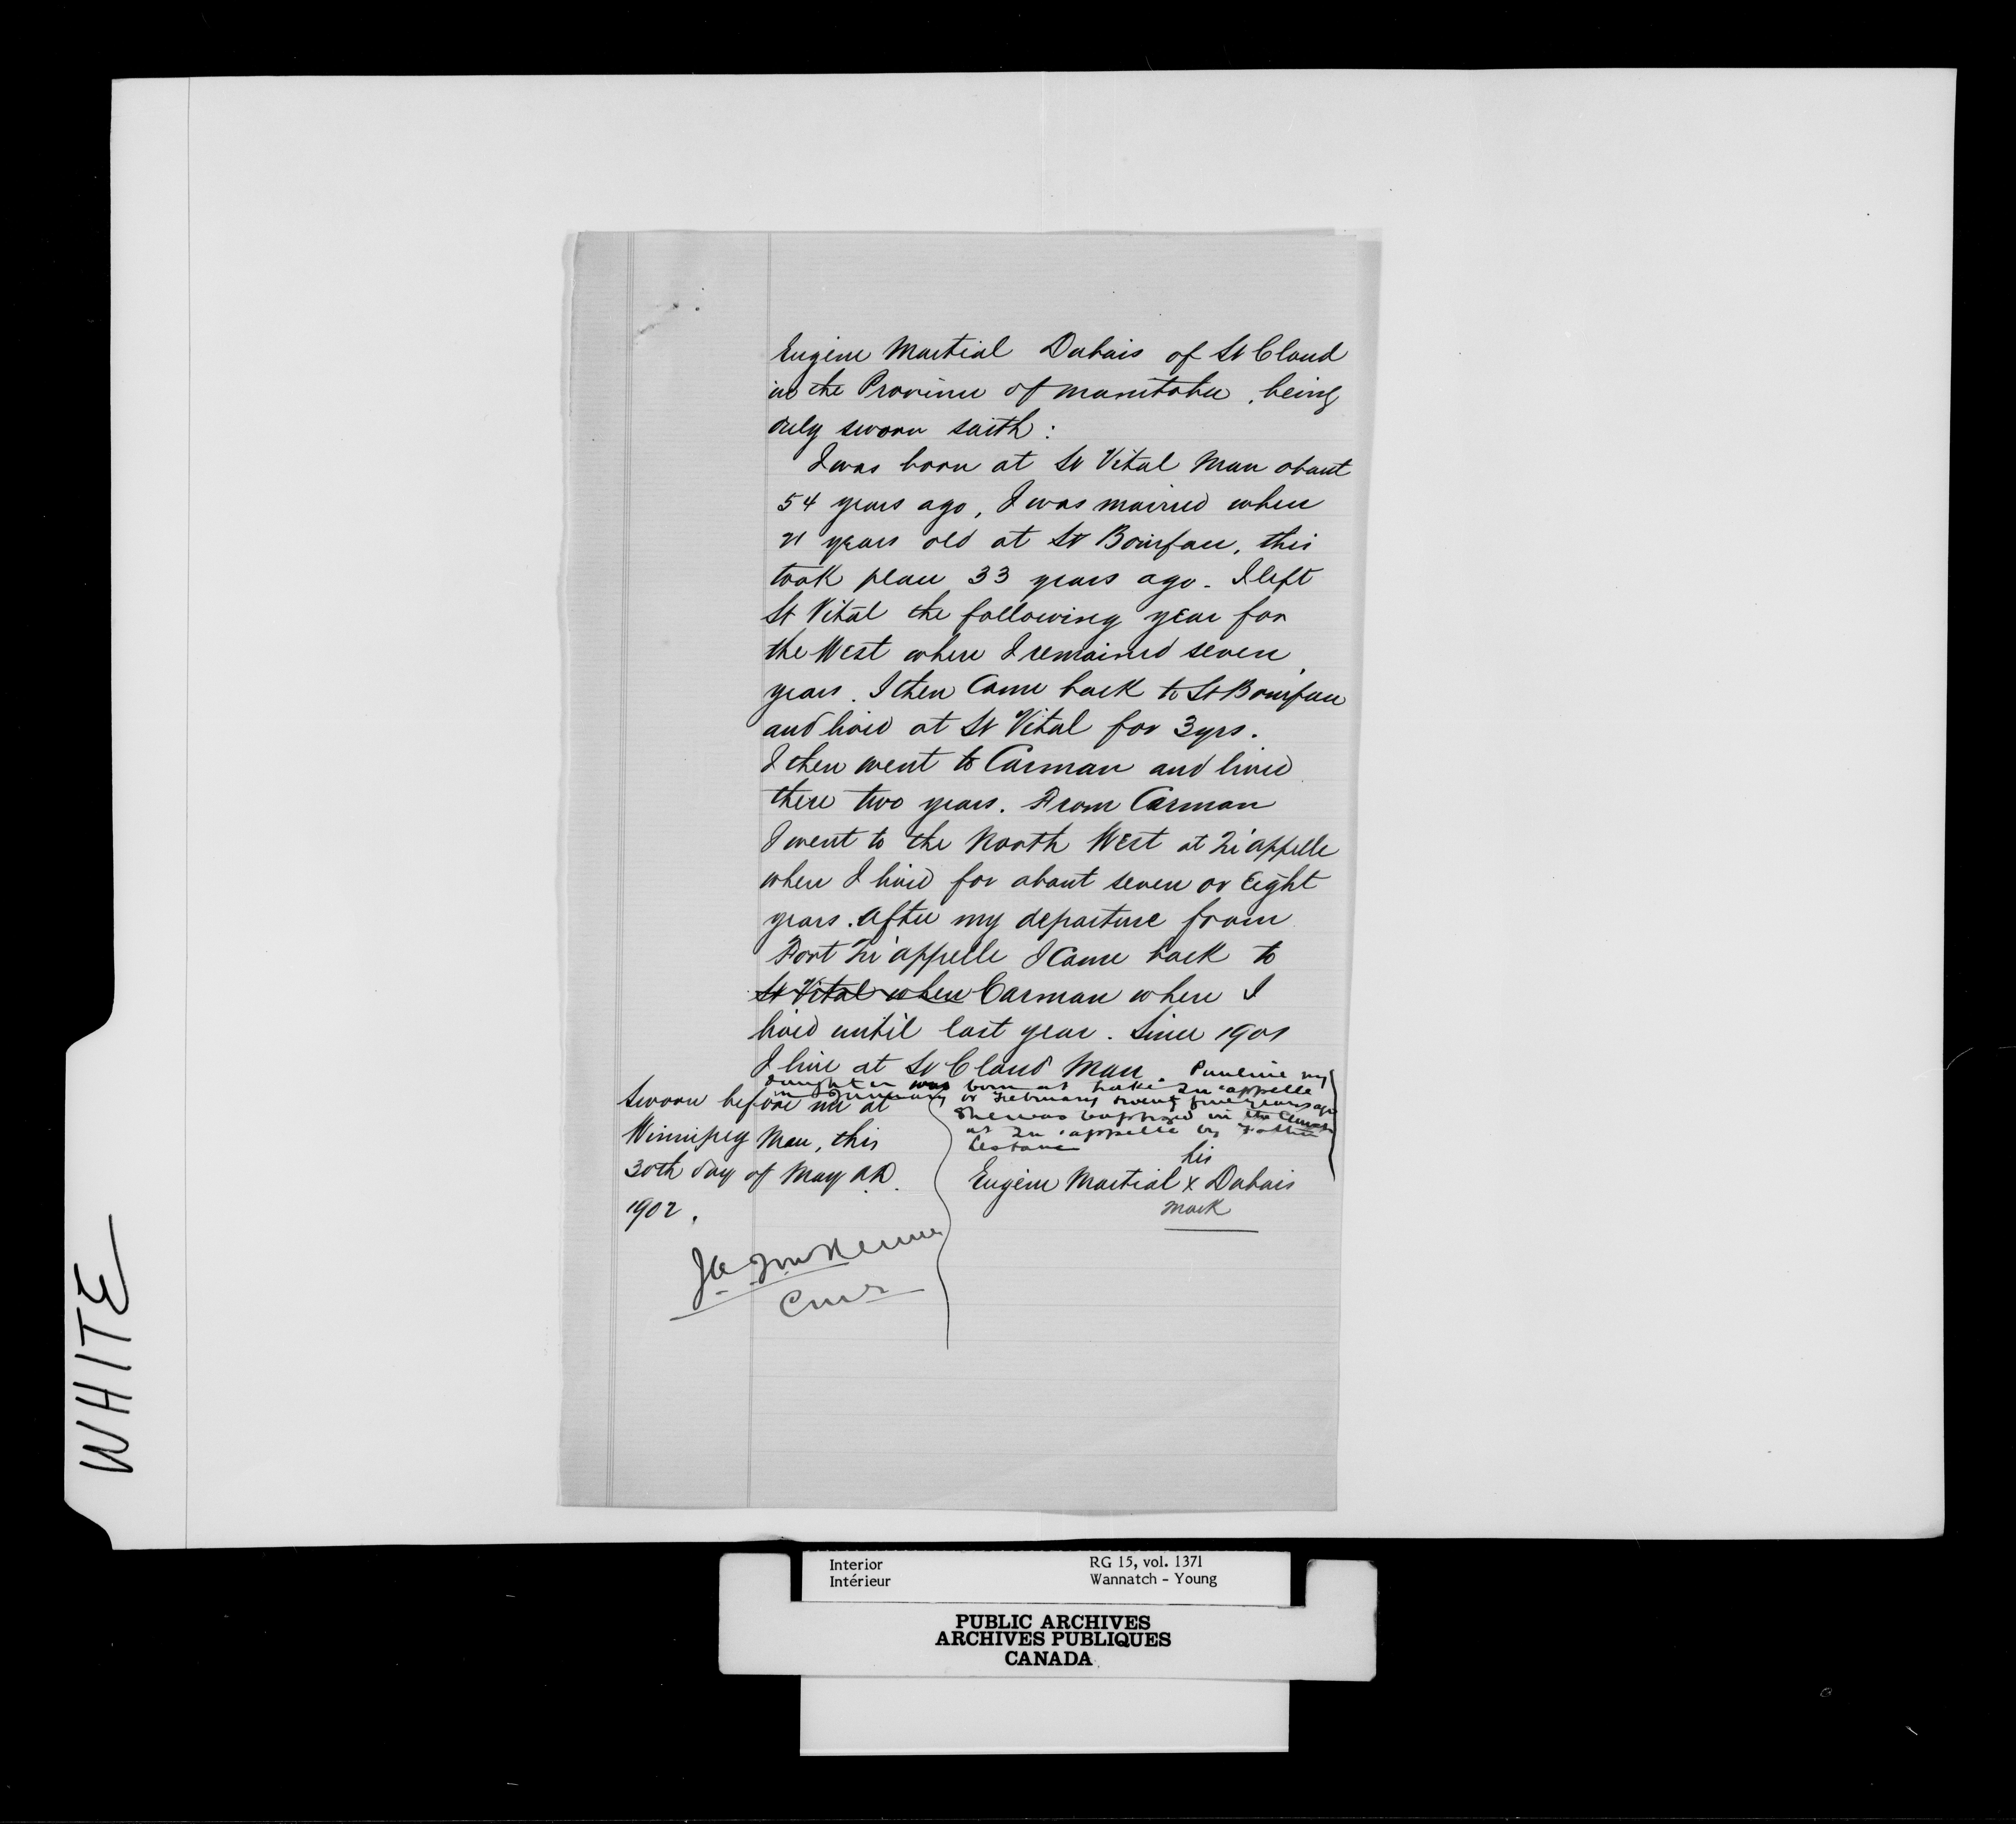 Eugène Martial Dubois of St Claud
in the Province of Manitoba, being
duly sworn saith:
I was born at St Vital Man about
54 years ago, I was married when
21 years old at St Boniface, this
took place 33 years ago. I left
St Vital the following year for
the West where I remained seven
years. I then Came back to St Boniface
and lived at St Vital for 3 yrs.
I then went to Carman and lived
there two years. From Carman
I went to the North West at Qu'appelle
where I lived for about seven or Eight
years. After my departure from
Fort Qu'appelle I Came back to
St Vital where Carman where I
lived until last year. Since 1901
I live at St Claud Man. Pauline my
daughter was born at Lake Qu'appelle
in January or February twenty five years ago
She was baptized in the Church
at Qu'appelle by Father
Lestanc
Sworn before me at
Winnipeg Man, this
30th day of May A.D.
1902.
his
Eugène Martial x Dubois
mark
WHITE
Interior
Intérieur
RG 15, vol. 1371
Wannatch - Young
PUBLIC ARCHIVES
ARCHIVES PUBLIQUES
CANADA